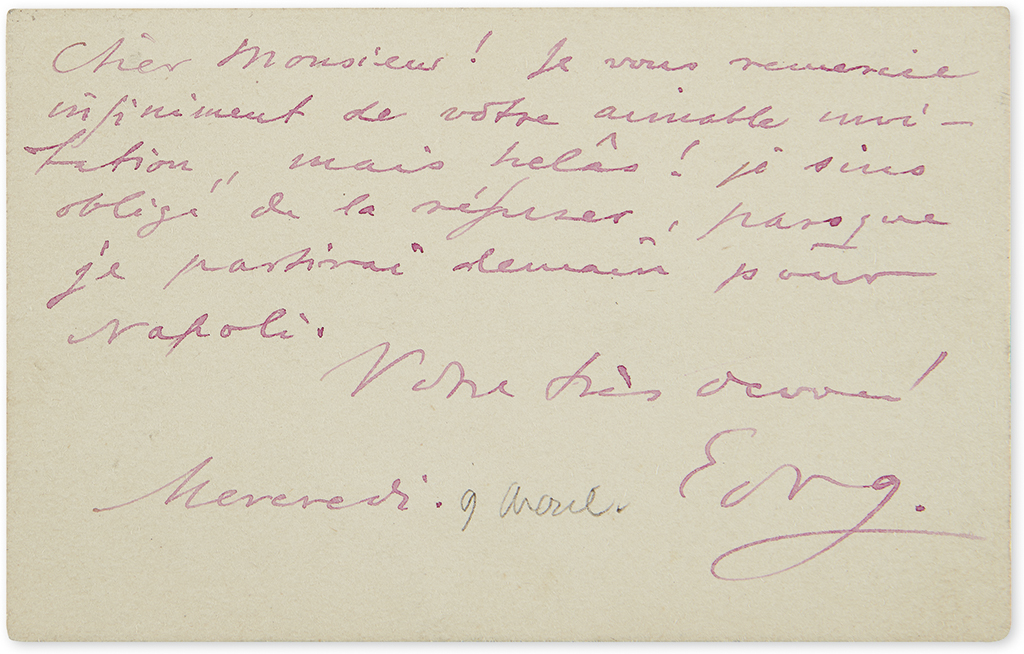 Cher Monsieur! Je vous remercie
infiniment de votre aimable invi-
tation, mais helâs! je suis
obligé de la réfuser, parsque
je partirai demain pour
Napoli.
Votre très devoué
Mercredi. 9 Avril.